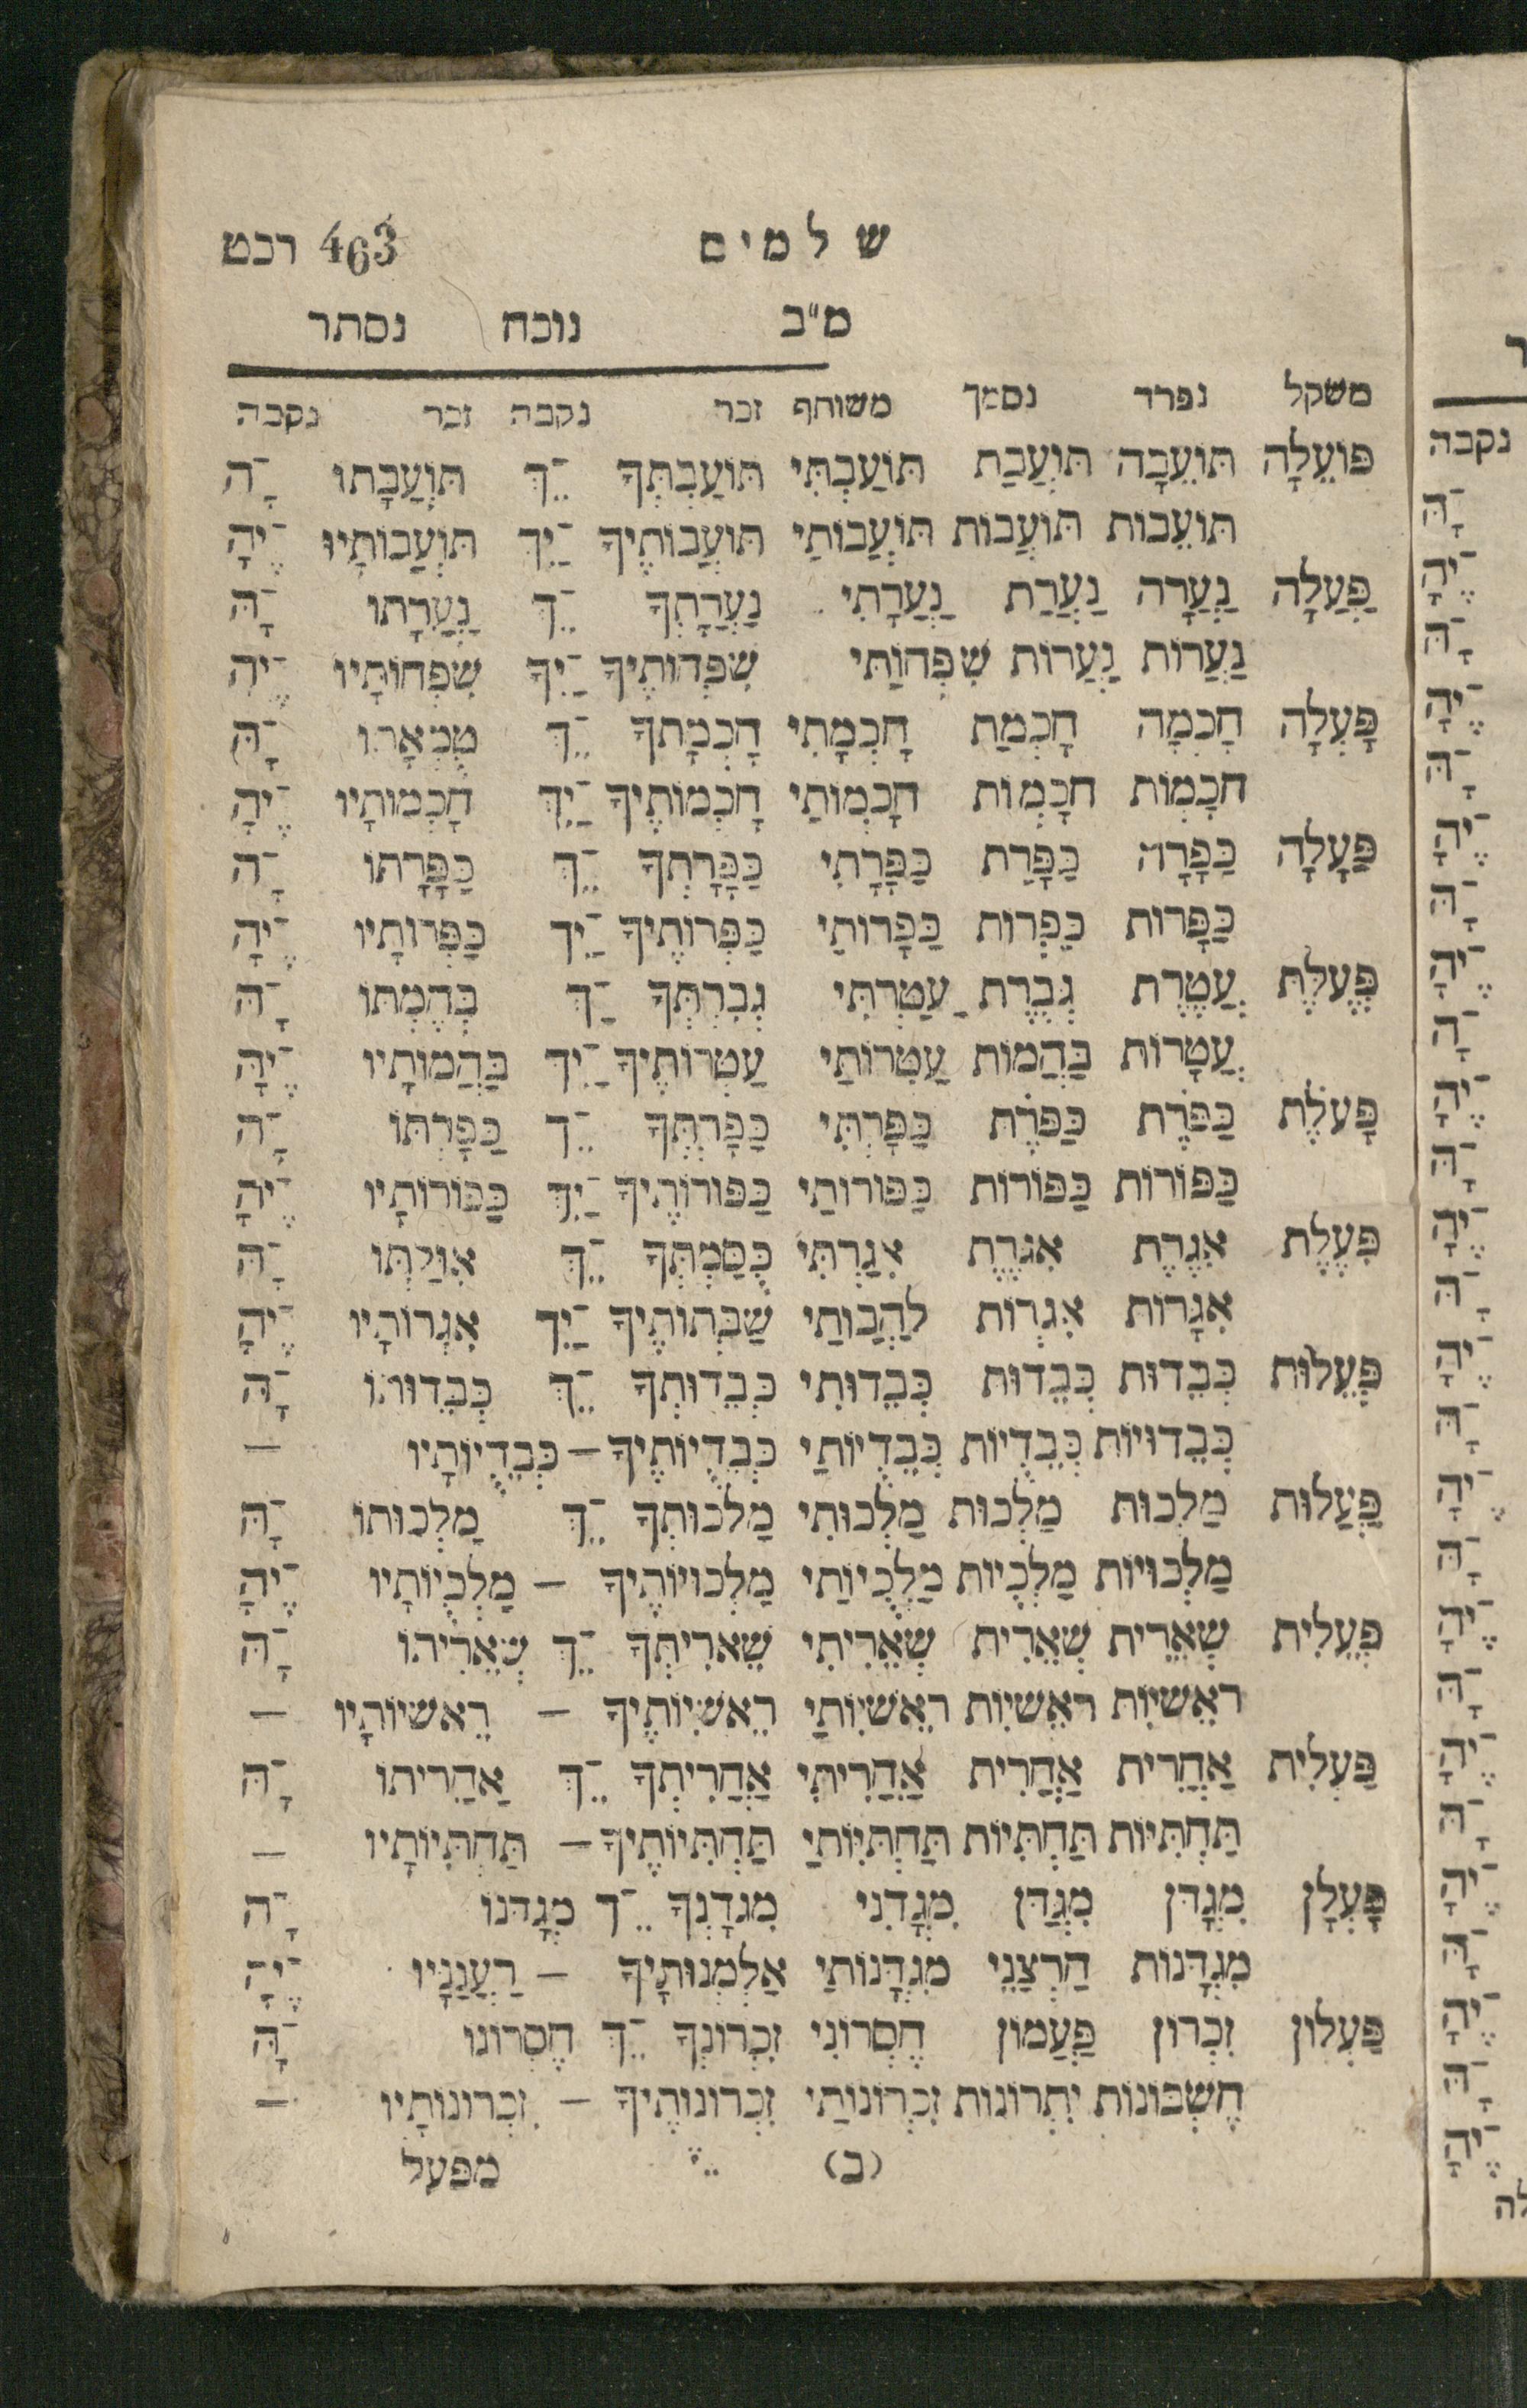 שלמים 463 רכט
מ"ב נוכח נסתר
משקל נפרד נסמך משותף זכר נקבה זכר נקבה
פּוֹעֵלָה תּוֹעֵבָה תּוֹעֲבַת תּוֹעַבְתִּי תּוֹעַבְתְּךָ ־ֵךְ תּוֹעֲבָתוֹ ־ָה
תּוֹעֵבוֹת תּוֹעֲבוֹת תּוֹעֲבוֹתַי תּוֹעֲבוֹתֶיךָ ־ַיִךְ תּוֹעֲבוֹתָיו ־ֶיהָ
פַּעְלָה נַעֲרָה נַעֲרַת נַעֲרָתִי נַעֲרָתְךָ ־ֵךְ נַעֲרָתוֹ ־ָהּ
נְעָרוֹת נַעֲרוֹת שִׁפְחוֹתַי שִׁפְחוֹתֶיךָ ־ַיִךְ שִׁפְחוֹתָיו ־ֶיהָ
פָּעְלָה חָכְמָה חָכְמַת חָכְמָתִי חָכְמָתְךָ ־ֵךְ טֻמְאָתוֹ ־ָהּ
חָכְמוֹת חָכְמוֹת חָכְמוֹתַי חָכְמוֹתֶיךָ ־ַיִךְ חָכְמוֹתָיו ־ֶיהָ
פַּעָלָה כַּפָּרָה כַּפָּרַת כַּפָּרָתִי כַּפָּרָתְךָ ־ֵךְ כַּפָּרָתוֹ ־ָהּ
כַּפָּרוֹת כַּפְּרוֹת כַּפָּרוֹתַי כַּפְּרוֹתֶיךָ ־ַיִךְ כַּפְּרוֹתָיו ־ֶיהָ
פְּעֶלֶת עֲטֶרֶת גְּבֶרֶת עֲטַרְתִּי גְּבִרְתְּךָ ־ֵךְ בְּהֶמְתּוֹ ־ָהּ
עֲטָרוֹת בַּהֲמוֹת עַטְרוֹתַי עַטְרוֹתֶיךָ ־ַיִךְ בַּהֲמוֹתָיו ־ֶיהָ
פַּעֹלֶת כַּפֹּרֶת כַּפֹּרֶת כַּפָּרְתִּי כַּפָּרְתְּךָ ־ֵךְ כַּפָּרְתּוֹ ־ָהּ
כַּפּוֹרוֹת כַּפּוֹרוֹת כַּפּוֹרוֹתַי כַּפּוֹרוֹתֶיךָ ־ַיִךְ כַּפּוֹרוֹתָיו ־ֶיהָ
פִּעֶלֶת אִגֶּרֶת אִגֶּרֶת אִגַּרְתִּי כֻּסַּמְתְּךָ ־ֵךְ אִוַּלְתּוֹ ־ָהּ
אִגָּרוֹת אִגְּרוֹת לַהֲבוֹתַי שַׁבְּתוֹתֶיךָ ־ַיִךְ אִגְּרוֹתָיו ־ֶיהָ
פְּעֵלוּת כְּבֵדוּת כְּבֵדוּת כְּבֵדוּתִי כְּבֵדוּתְךָ ־ֵךְ כְּבֵדוּתוֹ ־ָהּ
כְּבֵדוּיוֹת כְּבֵדֻיוֹת כְּבֵדֻיוֹתַי כְּבֵדֻיוֹתֶיךָ – כְּבֵדֻיוֹתָיו –
פַּעְלוּת מַלְכוּת מַלְכוּת מַלְכוּתִי מַלְכוּתְךָ ־ֵךְ מַלְכוּתוֹ ־ָהּ
מַלְכוּיוֹת מַלְכֻיוֹת מַלְכֻיוֹתַי מַלְכוּיוֹתֶיךָ – מַלְכֻיוֹתָיו ־ֶיהָ
פְּעֵלִית שְׁאֵרִית שְׁאֵרִית שְׁאֵרִיתִי שְׁאֵרִיתְךָ ־ֵךְ שְׁאֵרִיתוֹ ־ָהּ
רֵאשִׁיּוֹת רֵאשִׁיּוֹת רֵאשִׁיּוֹתַי רֵאשִׁיּוֹתֶיךָ – רֵאשִׁיּוֹתָיו –
פַּעְלִית אַחֲרִית אַחֲרִית אַחֲרִיתִי אַחֲרִיתְךָ ־ֵךְ אַחֲרִיתוֹ ־ָהּ
תַּחְתִּיּוֹת תַּחְתִּיּוֹת תַּחְתִּיּוֹתַי תַּחְתִּיּוֹתֶיךָ – תַּחְתִּיּוֹתָיו –
פָּעְלָן מִגְדָּן מִגְדַּן מִגְדָּנִי מִגְדָּנְךָ ־ֵךְ מִגְדָּנוֹ ־ָהּ
מִגְדָּנוֹת חַרְצַנֵּי מִגְדָּנוֹתַי אַלְמְנוּתָיִךְ – רַעֲנַנָּיו ־ֶיהָ
פַּעְלוֹן זִכְרוֹן פַּעֲמוֹן חֶסְרוֹנִי זִכְרוֹנְךָ ־ֵךְ חֶסְרוֹנוֹ ־ָהּ
חֶשְׁבּוֹנוֹת יִתְרוֹנוֹת זִכְרוֹנוֹתַי זִכְרוֹנוֹתֶיךָ – זִכְרוֹנוֹתָיו –
(ב) מפעל